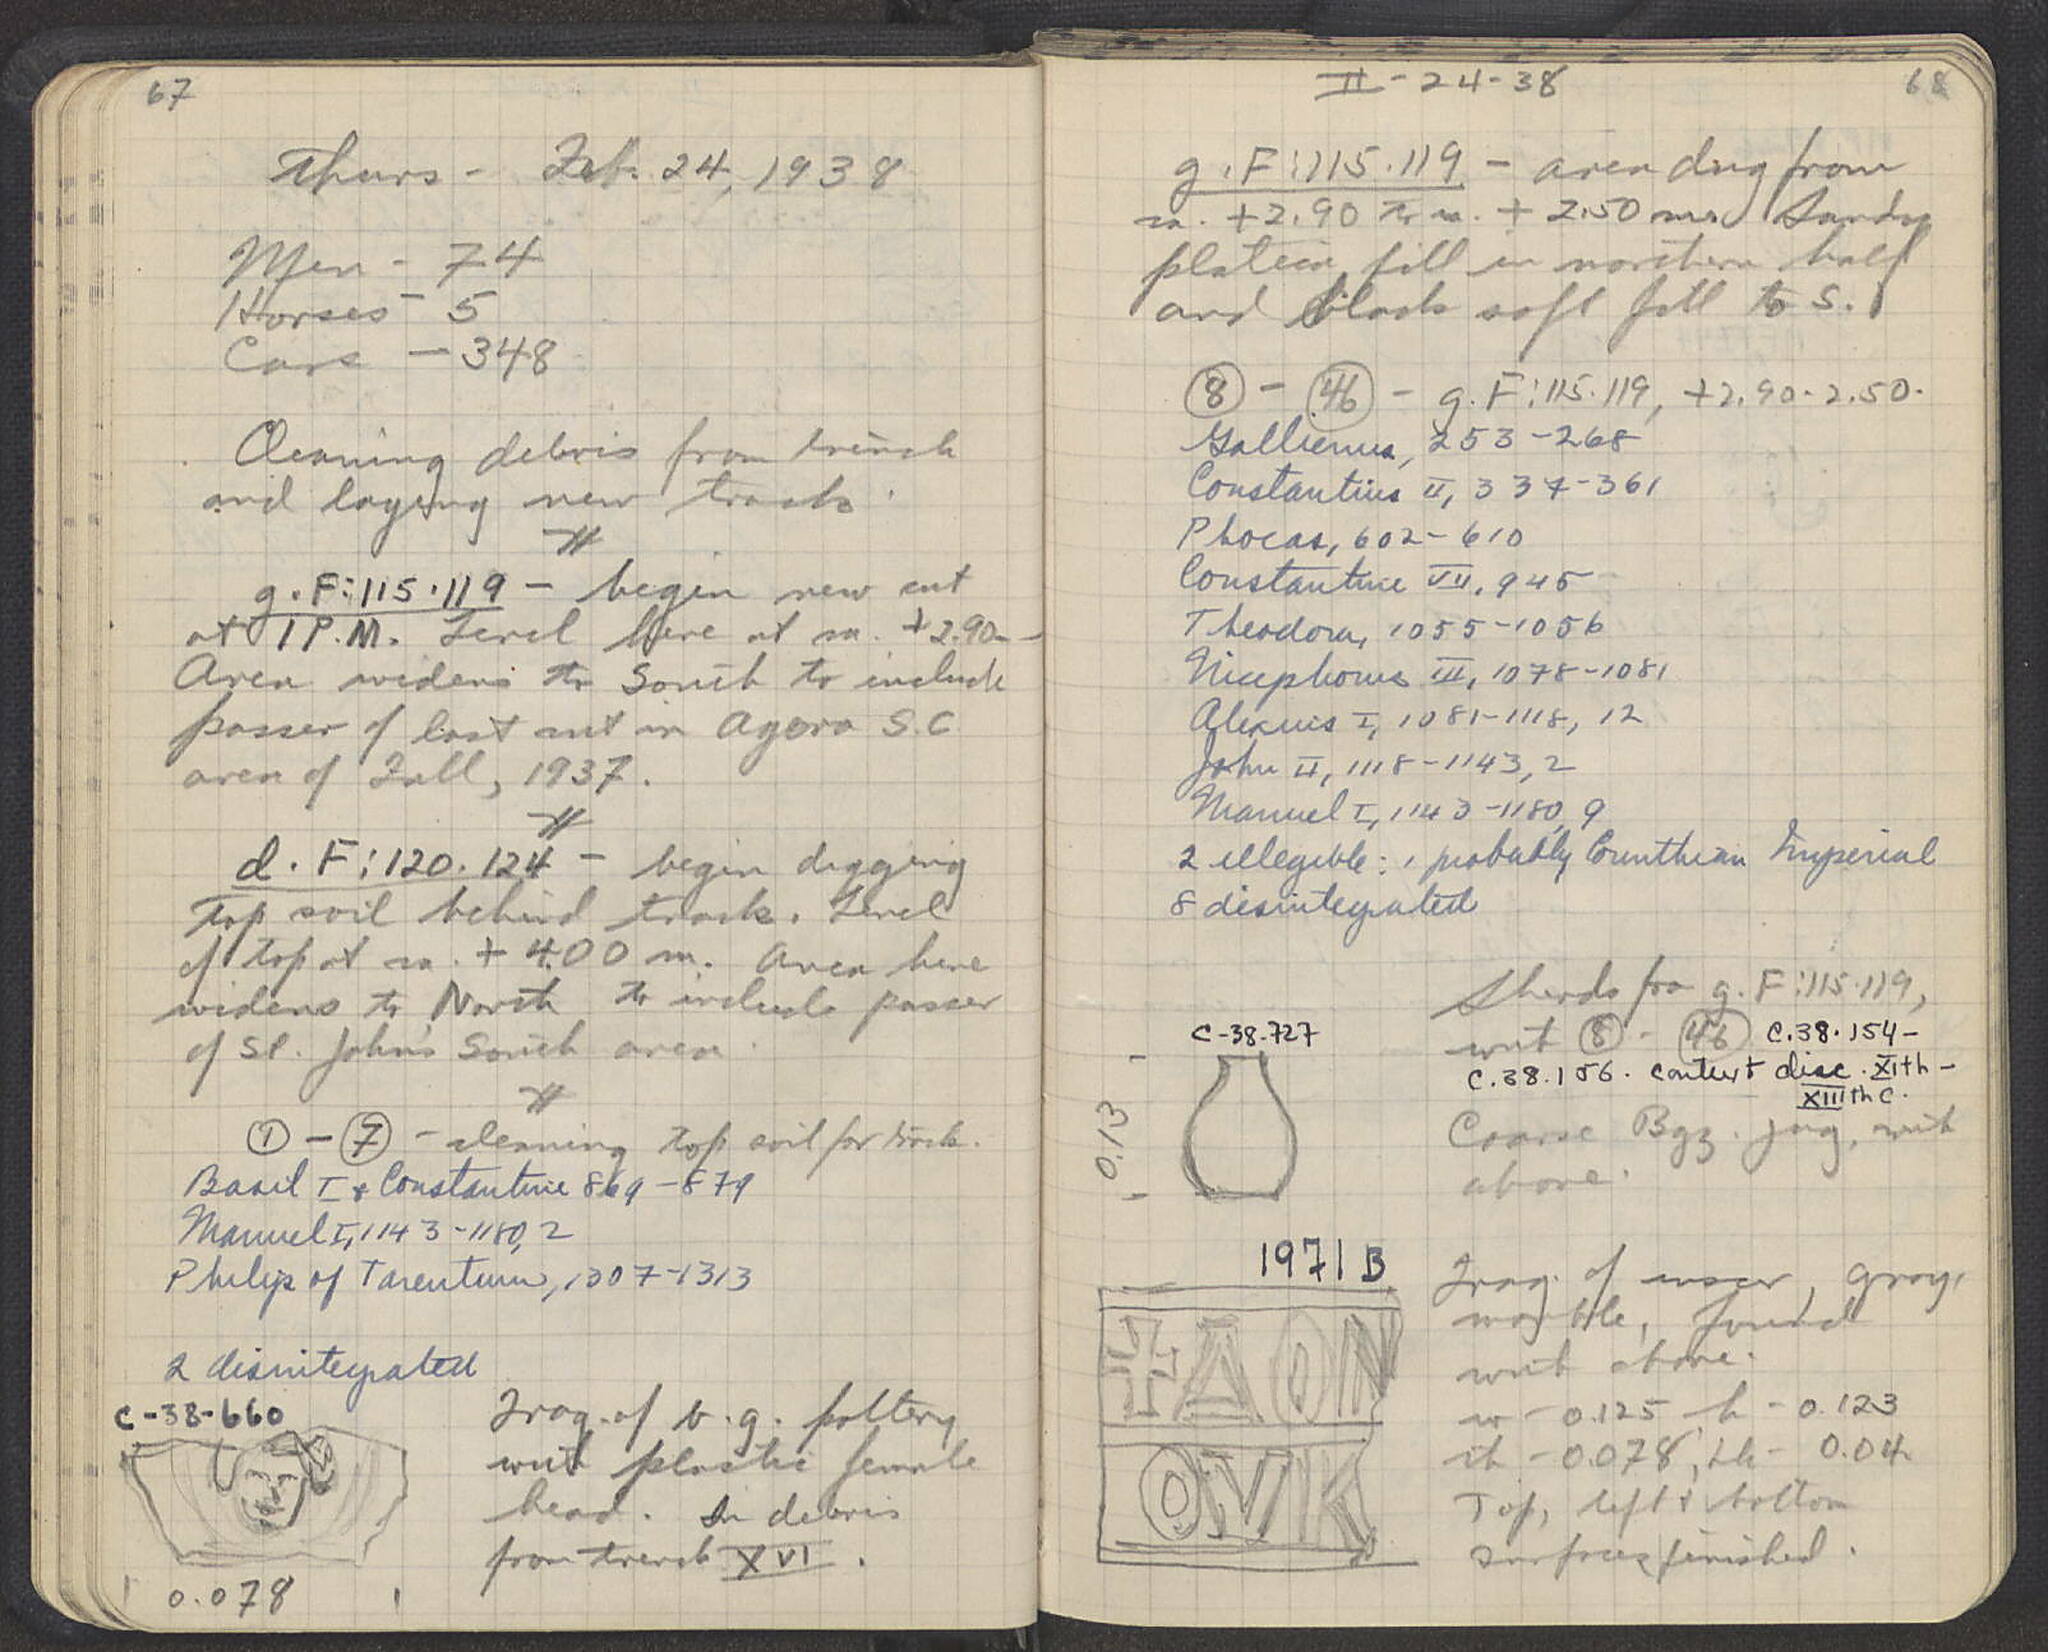 67
Thurs - Feb. 24, 1938
Men - 74
Horses - 5
Cars - 348
Cleaning debris from trench
and laying new track.
g. F:115.119 - begin new cut
at 1 P.M. Level here at ca. +2.90 -
Area widens to South to include
passer of last cut in Agora S.C
area of Fall, 1937.
d. F:120.124 - begin digging
top soil behind track. Level
of top at ca. + 4.00 m. Area here
widens to North to include passer
of St. John's South area.
① - ⑦ - cleaning top soil for track.
Basil I & Constantine 869-879
Manuel I, 1143-1180, 2
Philip of Tarentum, 1307-1313
2 disintegrated
C-38-660
Frag. of b.g. pottery
with plastic female
head. In debris
from trench XVI.
0.078
II-24-38
68
g. F:115.119 - area dug from
ca. +2.90 to ca. + 2.50 m. Sandy
fill in northern half
and black soft fill to S.
⑧ - ㊻ - g. F:115.119, +2.90-2.50.
Gallienus, 253-268
Constantius II, 337-361
Phocas, 602-610
Constantine VII, 945
Theodora, 1055-1056
Nicephorus III, 1078-1081
Alexius I, 1081-1118, 12
John II, 1118-1143, 2
Manuel I, 1143-1180, 9
2 illegible: 1 probably Corinthian Imperial
8 disintegrated
Sherds fro g. F:115.119,
wit ⑧ - ㊻ C.38.154-
C.38.156. context disc. XIth -
XIIIth C.
C-38-727
0.13
Coarse Byz. jug, with
above.
1971 B
‡ΔΟΝ
ΟΥΚ
Frag. of inscr, gray
marble, found
with above.
w - 0.125 h - 0.123
th - 0.078, Lh - 0.04
Top, left & bottom
surfaces finished.